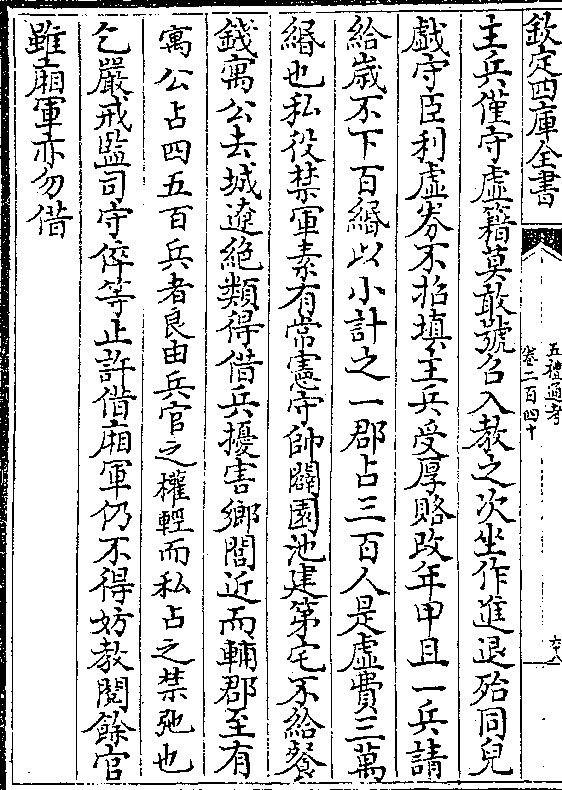 欽定四庫全書
五禮通考
卷二百四十
六十八
主兵僅守虛籍莫敢號召入教之次坐作進退殆同兒
戲守臣利虛券不招填主兵受厚賂改年甲且一兵請
給歲不下百緡以小計之一郡占三百人是虛費三萬
緡也私役禁軍素有常憲守帥闢園池建第宅不給餐
錢寓公去城遼絕類得借兵擾害鄉閭近而輔郡至有
寓公占四五百兵者良由兵官之權輕而私占之禁弛也
乞嚴戒監司守倅等止許借廂軍仍不得妨教閱餘官
雖廂軍亦勿借